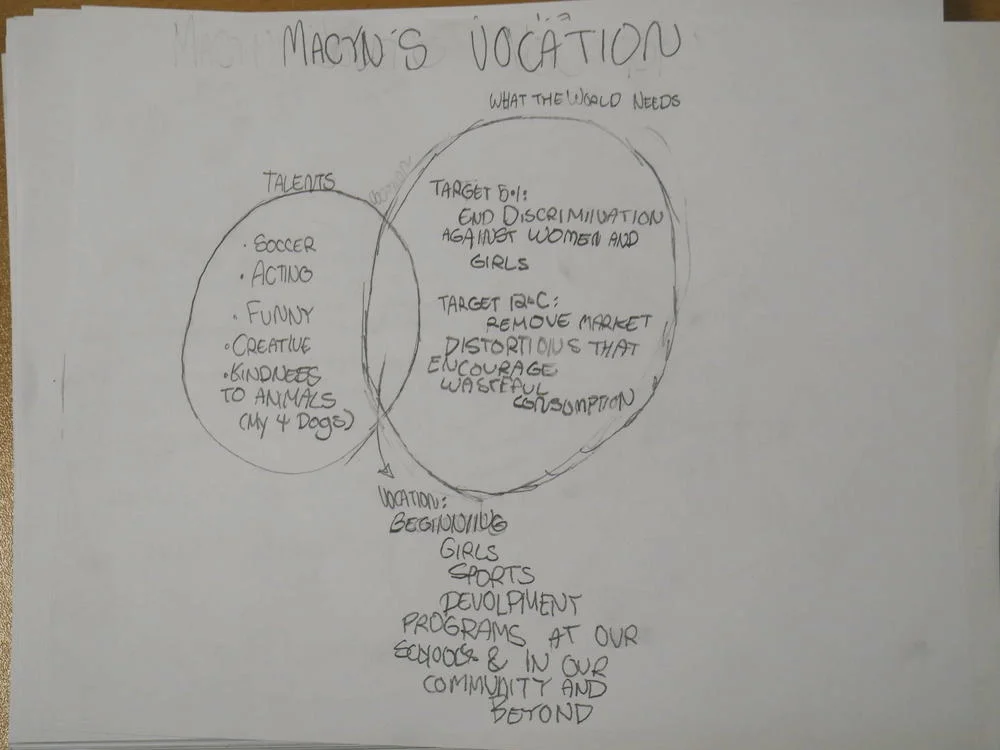 MACYN'S VOCATION
WHAT THE WORLD NEEDS
TALENTS
• SOCCER
• ACTING
• FUNNY
• CREATIVE
• KINDNESS
TO ANIMALS
(MY 4 DOGS)
TARGET 5.1:
END DISCRIMINATION
AGAINST WOMEN AND
GIRLS
TARGET 12.C:
REMOVE MARKET
DISTORTIONS THAT
ENCOURAGE
WASTEFUL
CONSUMPTION
VOCATION:
BEGINNING
GIRLS
SPORTS
DEVOLPMENT
PROGRAMS AT OUR
SCHOOLS & IN OUR
COMMUNITY AND
BEYOND